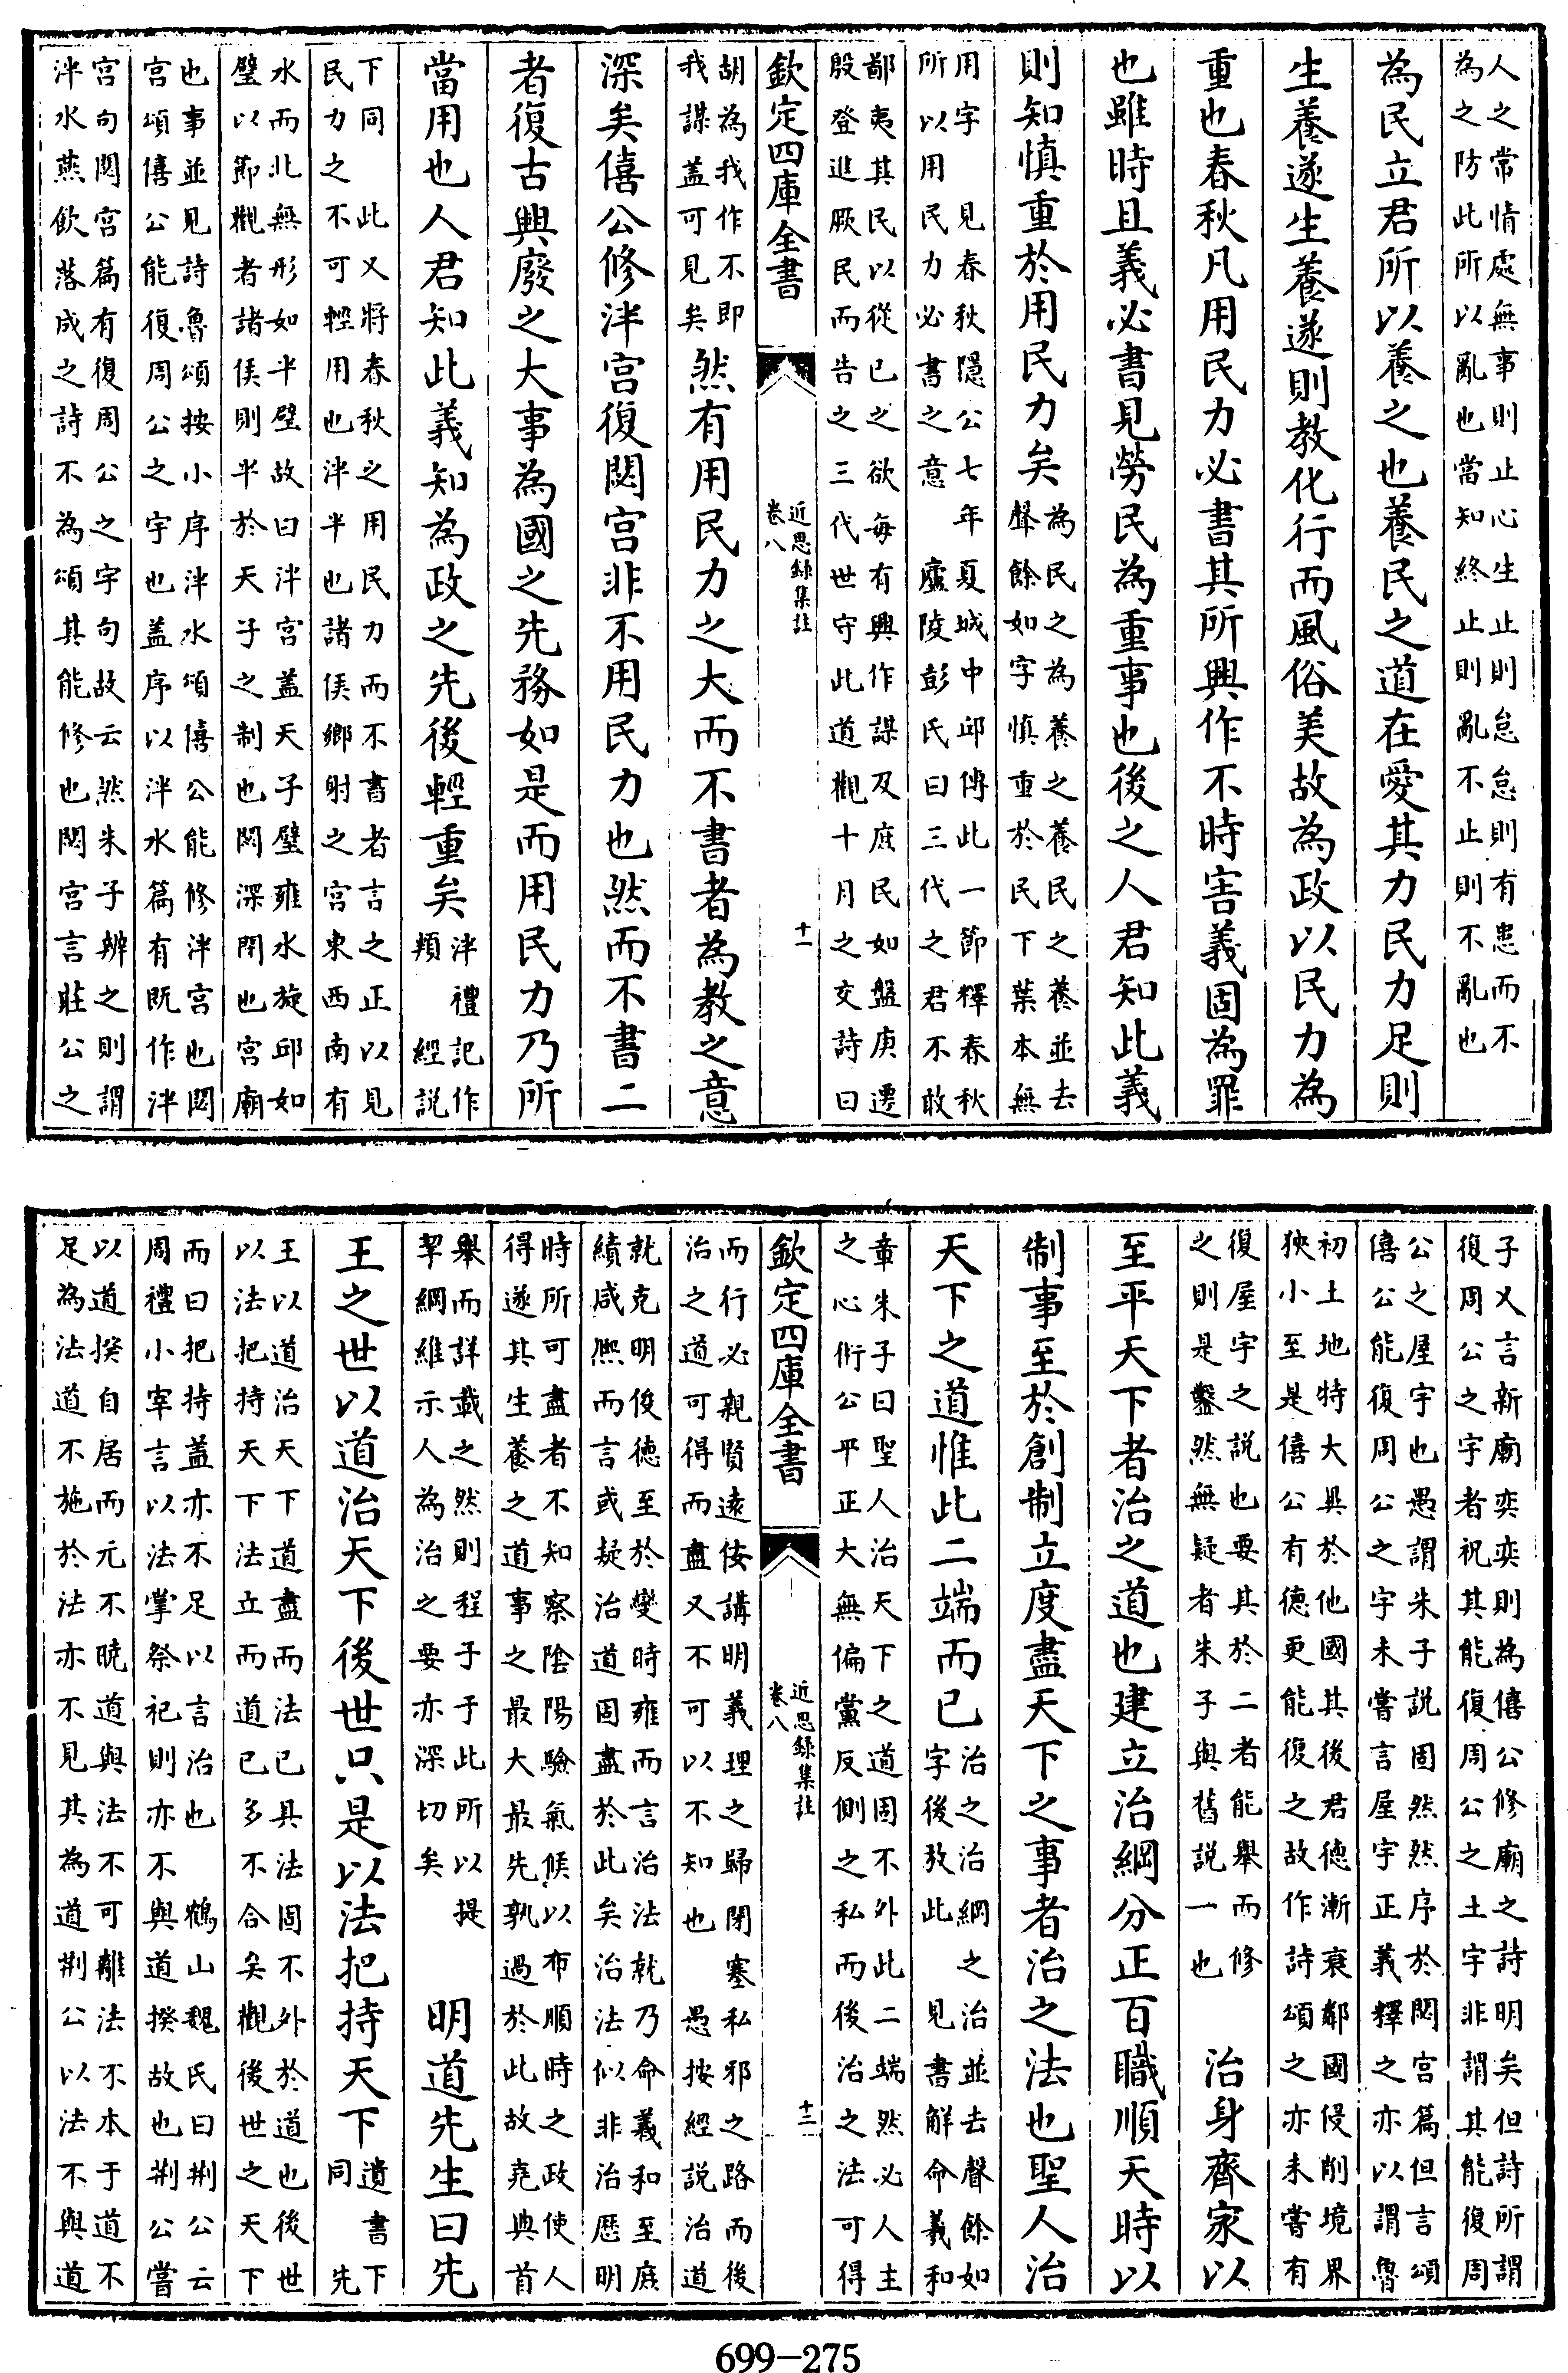 人之常情處無事則止心生止則怠怠則有患而不
為之防此所以亂也當知終止則亂不止則不亂也
為民立君所以養之也養民之道在愛其力民力足則
生養遂生養遂則教化行而風俗美故為政以民力為
重也春秋凡用民力必書其所興作不時害義固為罪
也雖時且義必書見勞民為重事也後之人君知此義
則知慎重於用民力矣為民之為養之養民之養並去
聲餘如字慎重於民下葉本無
用字　見春秋隱公七年夏城中邱傳此一節釋春秋
所以用民力必書之意　廬陵彭氏曰三代之君不敢
鄙夷其民以從已之欲每有興作謀及庶民如盤庚遷
殷登進厥民而告之三代世守此道觀十月之交詩曰
欽定四庫全書
近思録集註
卷八
十一
胡為我作不即
我謀盖可見矣然有用民力之大而不書者為教之意
深矣僖公修泮宫復閟宫非不用民力也然而不書二
者復古興廢之大事為國之先務如是而用民力乃所
當用也人君知此義知為政之先後輕重矣泮禮記作
頖　經説
下同　此又將春秋之用民力而不書者言之正以見
民力之不可輕用也泮半也諸侯鄉射之宫東西南有
水而北無形如半璧故曰泮宫盖天子璧雍水旋邱如
璧以節觀者諸侯則半於天子之制也閟深閉也宫廟
也事並見詩魯頌按小序泮水頌僖公能修泮宫也閟
宫頌僖公能復周公之宇也盖序以泮水篇有既作泮
宫句閟宫篇有復周公之宇句故云然朱子辨之則謂
泮水燕飲落成之詩不為頌其能修也閟宫言莊公之
子又言新廟奕奕則為僖公修廟之詩明矣但詩所謂
復周公之宇者祝其能復周公之土宇非謂其能復周
公之屋宇也愚謂朱子説固然然序於閟宫篇但言頌
僖公能復周公之宇未嘗言屋宇正義釋之亦以謂魯
初土地特大異於他國其後君德漸衰鄰國侵削境界
狹小至是僖公有德更能復之故作詩頌之亦未嘗有
復屋宇之説也要其於二者能舉而修
之則是鑿然無疑者朱子與舊説一也　治身齊家以
至平天下者治之道也建立治綱分正百職順天時以
制事至於創制立度盡天下之事者治之法也聖人治
天下之道惟此二端而已治之治綱之治並去聲餘如
字後攷此　見書解命羲和
章朱子曰聖人治天下之道固不外此二端然必人主
之心術公平正大無偏黨反側之私而後治之法可得
欽定四庫全書
近思録集註
卷八
十二
而行必親賢遠佞講明義理之歸閉塞私邪之路而後
治之道可得而盡又不可以不知也　愚按經説治道
就克明俊德至於變時雍而言治法就乃命羲和至庶
績咸熙而言或疑治道固盡於此矣治法似非治歷明
時所可盡者不知察陰陽驗氣候以布順時之政使人
得遂其生養之道事之最大最先孰過於此故堯典首
舉而詳載之然則程子于此所以提
挈綱維示人為治之要亦深切矣　明道先生曰先
王之世以道治天下後世只是以法把持天下遺書下
同　先
王以道治天下道盡而法已具法固不外於道也後世
以法把持天下法立而道已多不合矣觀後世之天下
而曰把持盖亦不足以言治也　鶴山魏氏曰荆公云
周禮小宰言以法掌祭祀則亦不與道揆故也荆公嘗
以道揆自居而元不曉道與法不可離法不本于道不
足為法道不施於法亦不見其為道荆公以法不與道
699-275